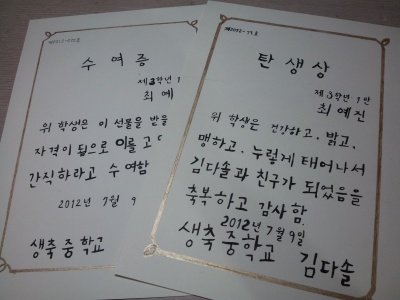 수여증
제3학년 1
최예
위 학생은 이 선물을 받을
자격이 됨으로 이를 고
간직하라고 수여함
2012년 7월 9
생축중학교
제2012-77호
탄생상
제3학년 1반
최예진
위 학생은 건강하고, 밝고,
맹하고, 누렇게 태어나서
김다솔과 친구가 되었음을
축복하고 감사함.
2012년 7월 9일
생축중학교 김다솔